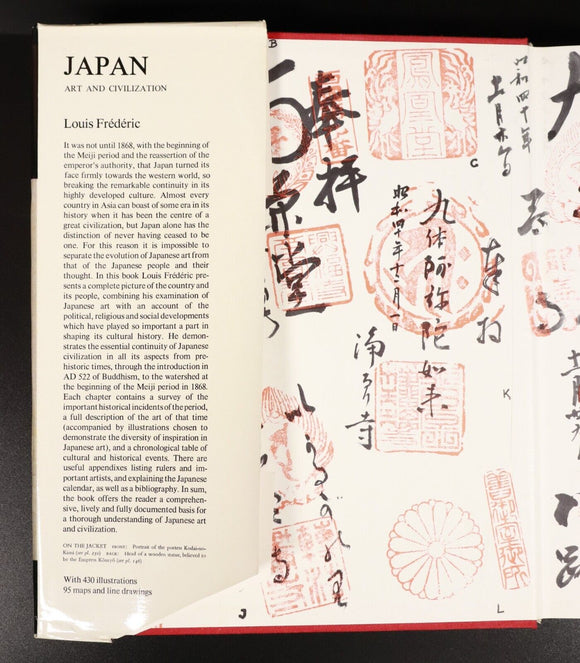 JAPAN
ART AND CIVILIZATION
Louis Frédéric
It was not until 1868, with the beginning of
the Meiji period and the reassertion of the
emperor's authority, that Japan turned its
face firmly towards the western world, so
breaking the remarkable continuity in its
highly developed culture. Almost every
country in Asia can boast of some era in its
history when it has been the centre of a
great civilization, but Japan alone has the
distinction of never having ceased to be
one. For this reason it is impossible to
separate the evolution of Japanese art from
that of the Japanese people and their
thought. In this book Louis Frédéric pre-
sents a complete picture of the country and
its people, combining his examination of
Japanese art with an account of the
political, religious and social developments
which have played so important a part in
shaping its cultural history. He demon-
strates the essential continuity of Japanese
civilization in all its aspects from pre-
historic times, through the introduction in
AD 522 of Buddhism, to the watershed at
the beginning of the Meiji period in 1868.
Each chapter contains a survey of the
important historical incidents of the period,
a full description of the art of that time
(accompanied by illustrations chosen to
demonstrate the diversity of inspiration in
Japanese art), and a chronological table of
cultural and historical events. There are
useful appendixes listing rulers and im-
portant artists, and explaining the Japanese
calendar, as well as a bibliography. In sum,
the book offers the reader a comprehen-
sive, lively and fully documented basis for
a thorough understanding of Japanese art
and civilization.
ON THE JACKET FRONT: Portrait of the poetess Kodai-no-
Kimi (see pl. 250) BACK: Head of a wooden statue, believed to
be the Empress Kōmyō (see pl. 146)
With 430 illustrations
95 maps and line drawings
B
奉拝
鳳凰堂
昭和四十年
G
九体阿弥陀如来
昭和四十年十二月一日
奉拝
浄瑠璃寺
K
J
L